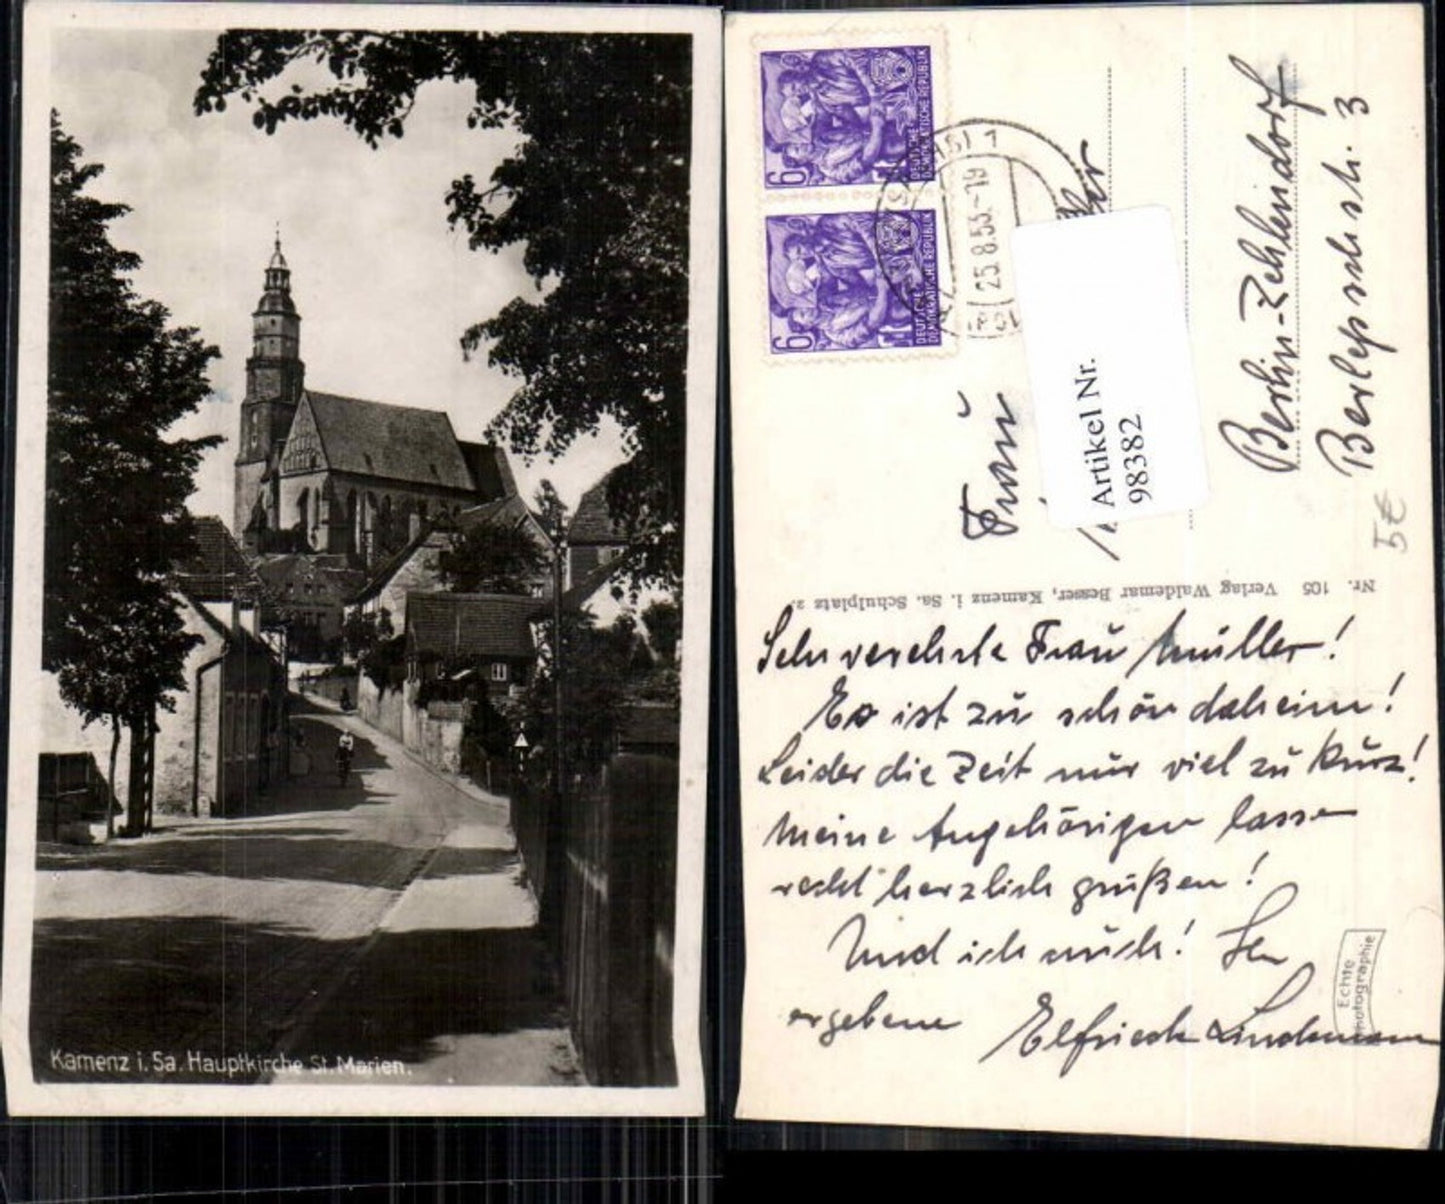 Kamenz i. Sa. Hauptkirche St. Marien.
6
DEUTSCHE
DEMOKRATISCHE REPUBLIK
6
DEUTSCHE
DEMOKRATISCHE REPUBLIK
25.8.53.-19
Artikel Nr.
98382
Frau
Berlin-Zehlendorf
Berlepschstr. 3
5€
Nr. 105 Verlag Waldemar Besser, Kamenz i. Sa. Schulplatz 2.
Sehr verehrte Frau Müller!
Es ist zu schön daheim!
Leider die Zeit nur viel zu kurz!
Meine Angehörigen lassen
recht herzlich grüßen!
Und ich auch! Ihre
ergebene Elfriede Lindemann
Echte
Photographie